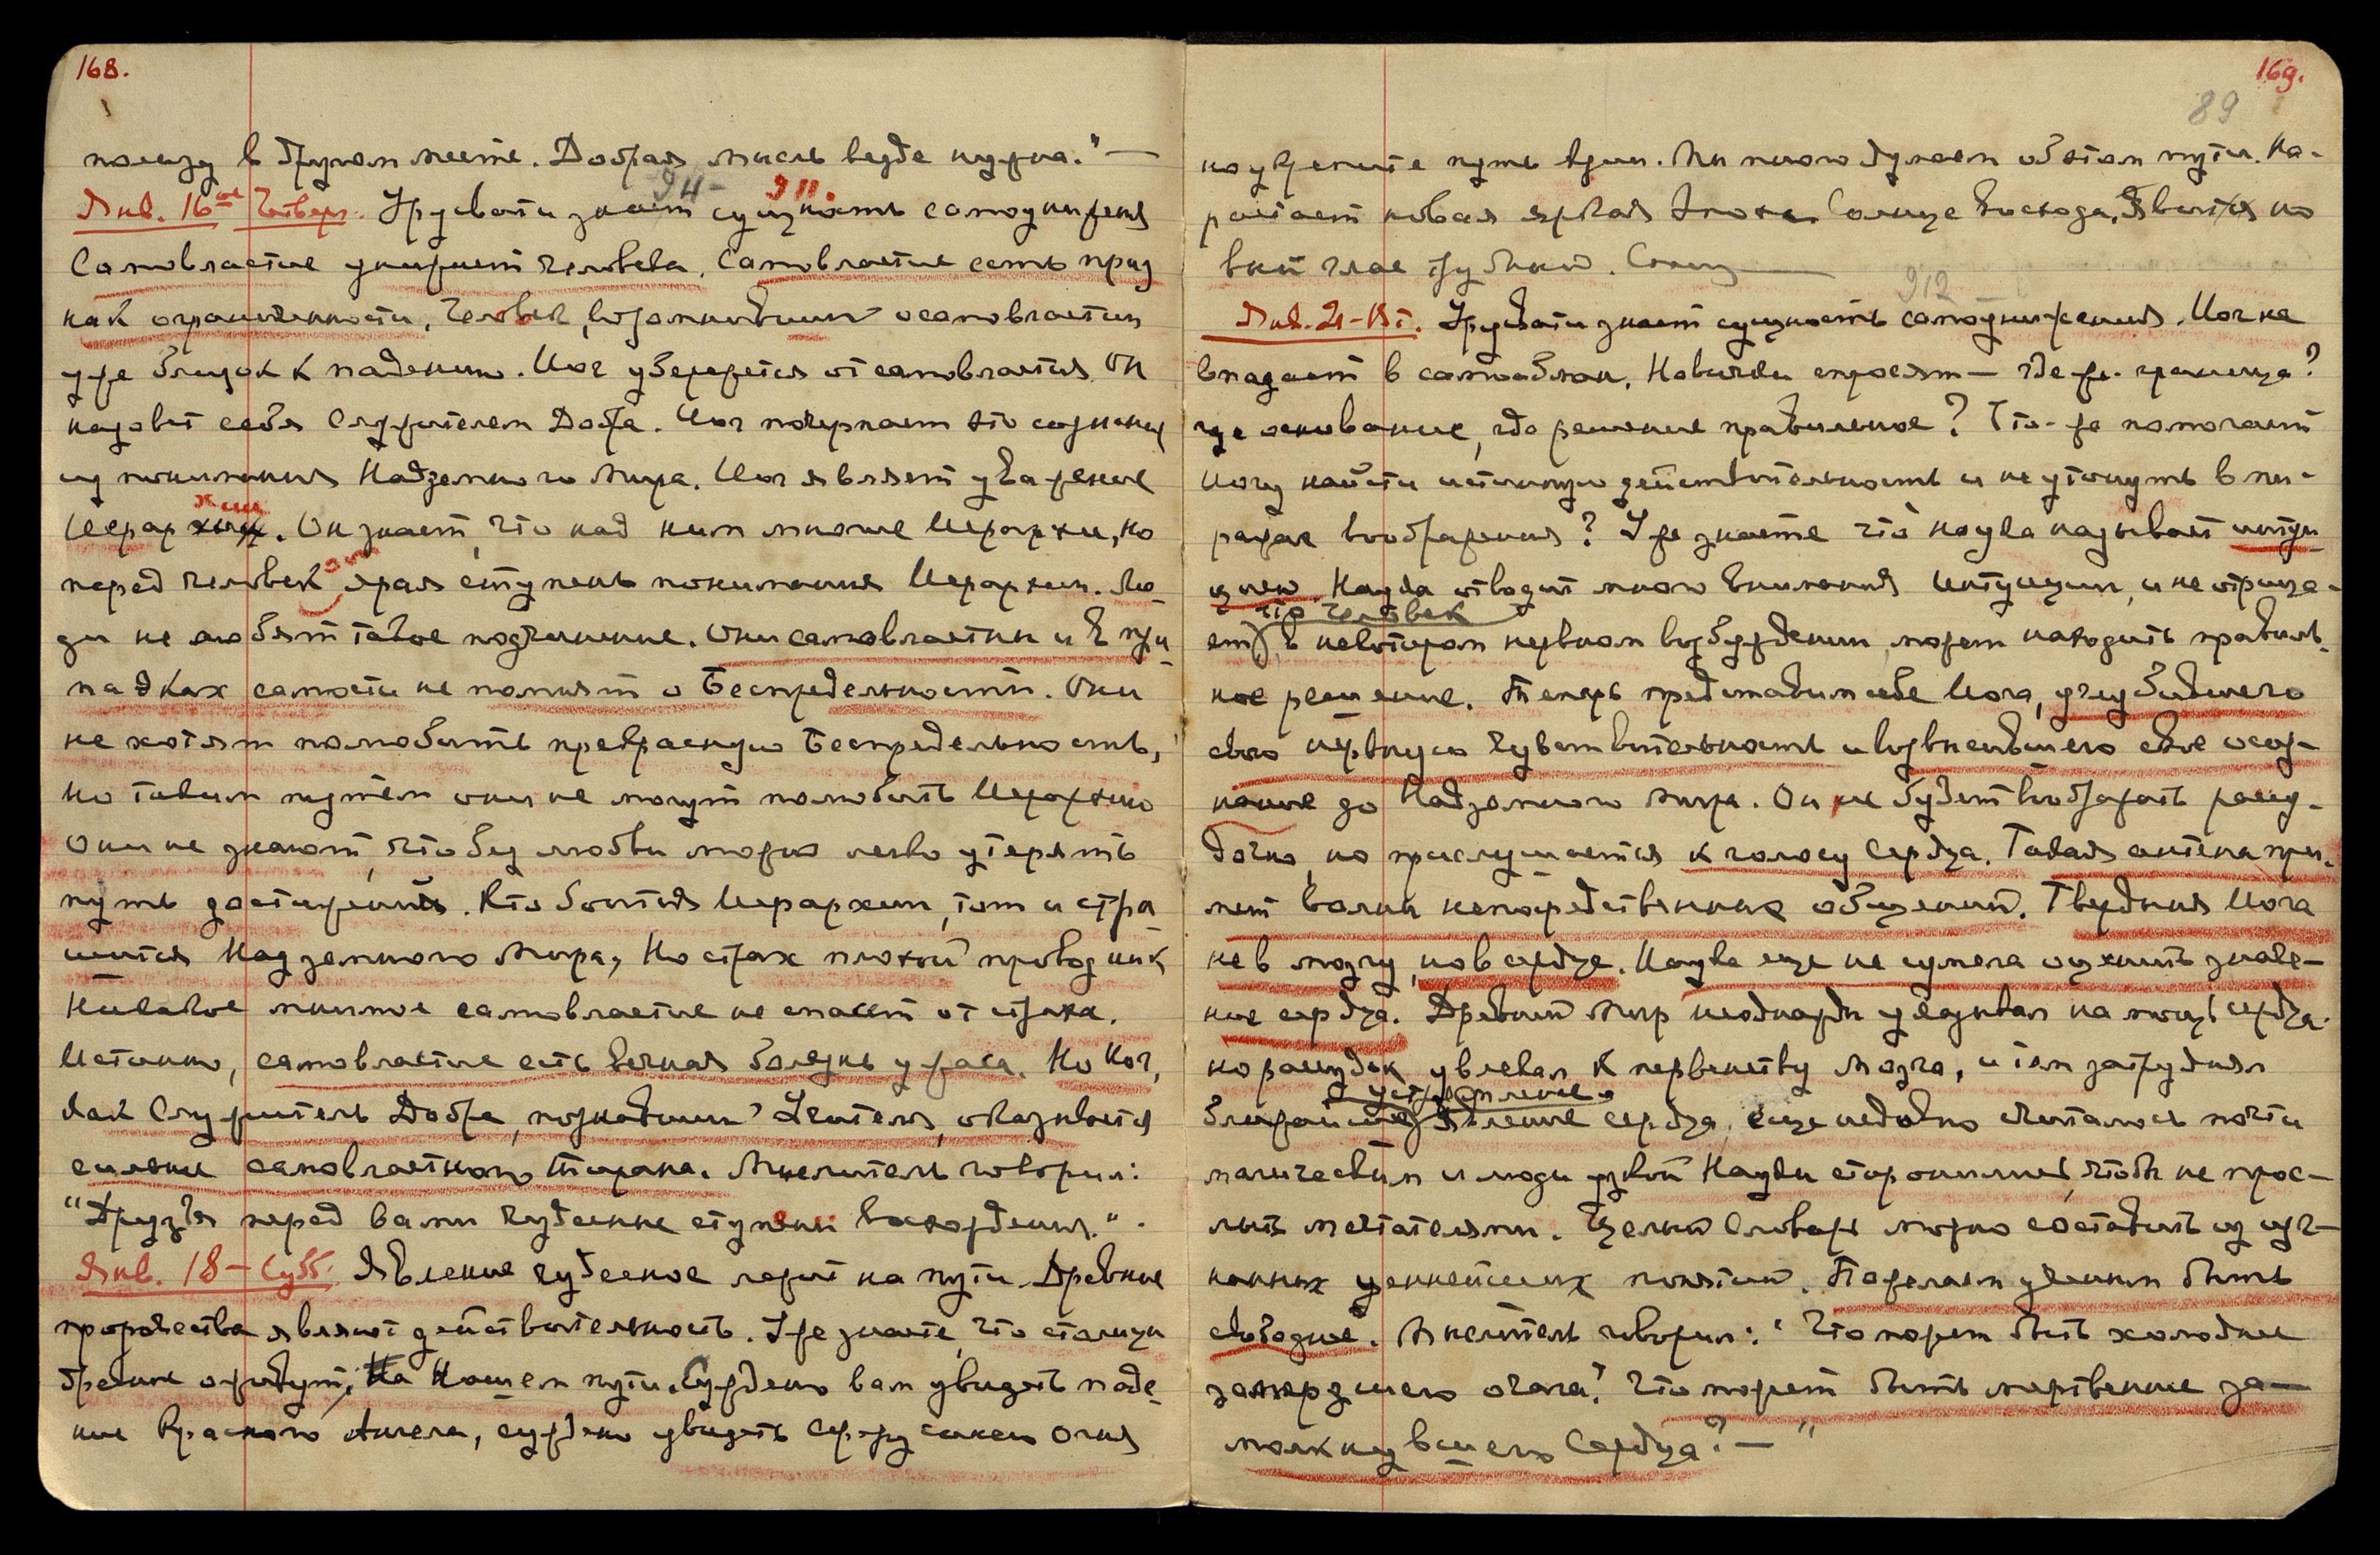 168.
пользу в другом месте. Добрая мысль везде нужна." —
911.
Янв. 16ое Четверг. Урусвати знает сущность самоунижения
Самовластие унижает человека. Самовластие есть приз
нак ограниченности. Человек, возомнивший о самовластии
уже близок к падению. Иог убережется от самовластия. Он
назовет себя Служителем Добра. Иог почерпает это сознание
из понимания Надземного Мира. Иог являет уважение
Иерархии. Он знает, что над ним многие Иерархии, но
перед человеком ярая ступень понимания Иерархии. Лю-
ди не любят такое подчинение. Они самовластны и в при-
падках самости не помнят о Беспредельности. Они
не хотят полюбить прекрасную Беспредельность,
но таким путем они не могут полюбить Иерархию
Они не знают, что без любви можно легко утерять
путь достижений. Кто боится Иерархии, тот и стра
шится Надземного Мира, Но страх плохой проводник
Никакое мнимое самовластие не спасет от страха.
Истинно, самовластие есть вечная болезнь ужаса. Но Иог,
как Служитель Добра, познавший Учителя, оказывается
сильнее самовластного тирана. Мыслитель говорил:
"Друзья перед вами чудесные ступени восхождения." .
Янв. 18 — Субб. Явление чудесное лежит на пути. Древние
пророчества являют действительность. Уже знаете, что столицы
древние оживут, На Нашем пути. Суждено вам увидеть паде-
ние Красного Ангела, суждено увидеть Сферу синего Огня
169.
89
но укрепите путь. Мы много думаем об этом пути. На-
растает новая яркая Эпоха. Солнце Восхода. Явится но
вый глас трубный.
912
Янв. 21 — Вт. Урусвати знает сущность самоунижения. Иог не
впадает в самообман. Новички спросят — где же граница?
где основание, где решение правильное? Что-же помогает
Иогу найти истинную действительность и не утонуть в ми-
ражах воображения? Уже знаете что наука называет интуи
цией. Наука отводит много внимания Интуиции, и не отрица-
что человек
ет, в некотором нервном возбуждении, может находить правиль-
ное решение. Теперь представим себе Иога, углубившего
свою нервную чувствительность и возвысившего свое созн-
нание до Надземного Мира. Он не будет воображать рассу-
дочно, но прислушается к голосу Сердца. Такая антена при-
мет волны непосредственных общений. Твердыня Иога
не в мозгу, но в сердце. Наука еще не сумела оценить значе-
ние сердца. Древний Мир неоднажды указывал на мощь сердца.
но рассудок увлекал к первенству мозга, и тем затруднял
устремление
ближайшее явление сердца, еще недавно считалось почти
магическим и люди узкой Науки сторонились, чтобы не прос-
лыть мечтателями. Целый Словарь можно составить из изг-
нанных ценнейших понятий. Пожелаем ученым быть
свободнее. Мыслитель говорил: "Что может быть холоднее
замерзшего очага? Что может быть мертвеннее за—
молкнувшего Сердца? — "